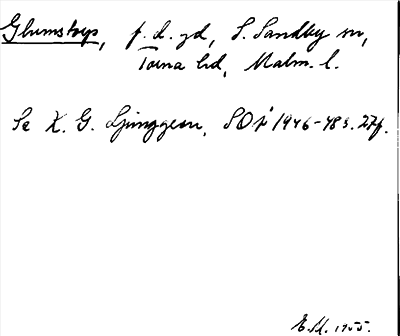 Glumstorp, f. d. gd, S. Sandby sn,
Torna hd, Malm. l.
Se K. G. Ljunggren, SOÅ 1946-48 s. 27f.
1955.